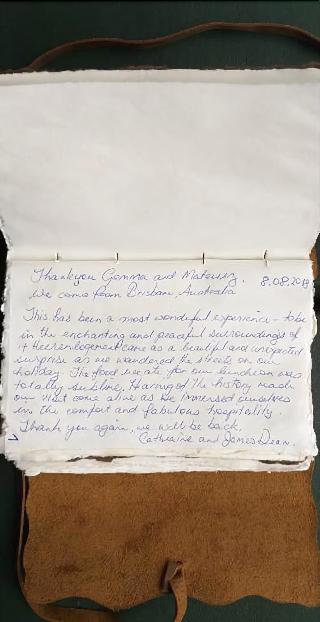 Thankyou Gemma and 8.08.2018
We come from Brisbane, Australia
This has been a most wonderful experience - to be
in the enchanting and peaceful surroundings of
Heerenlogement came as a beautiful and unexpected
surprise as we wandered the streets on our
holiday. The food we ate for our luncheon was
totally sublime, Hearing of the history made
our visit come alive as we immersed ourselves
in the comfort and fabulous hospitality.
Thank you again, we will be back,
Catherine and James Dean.